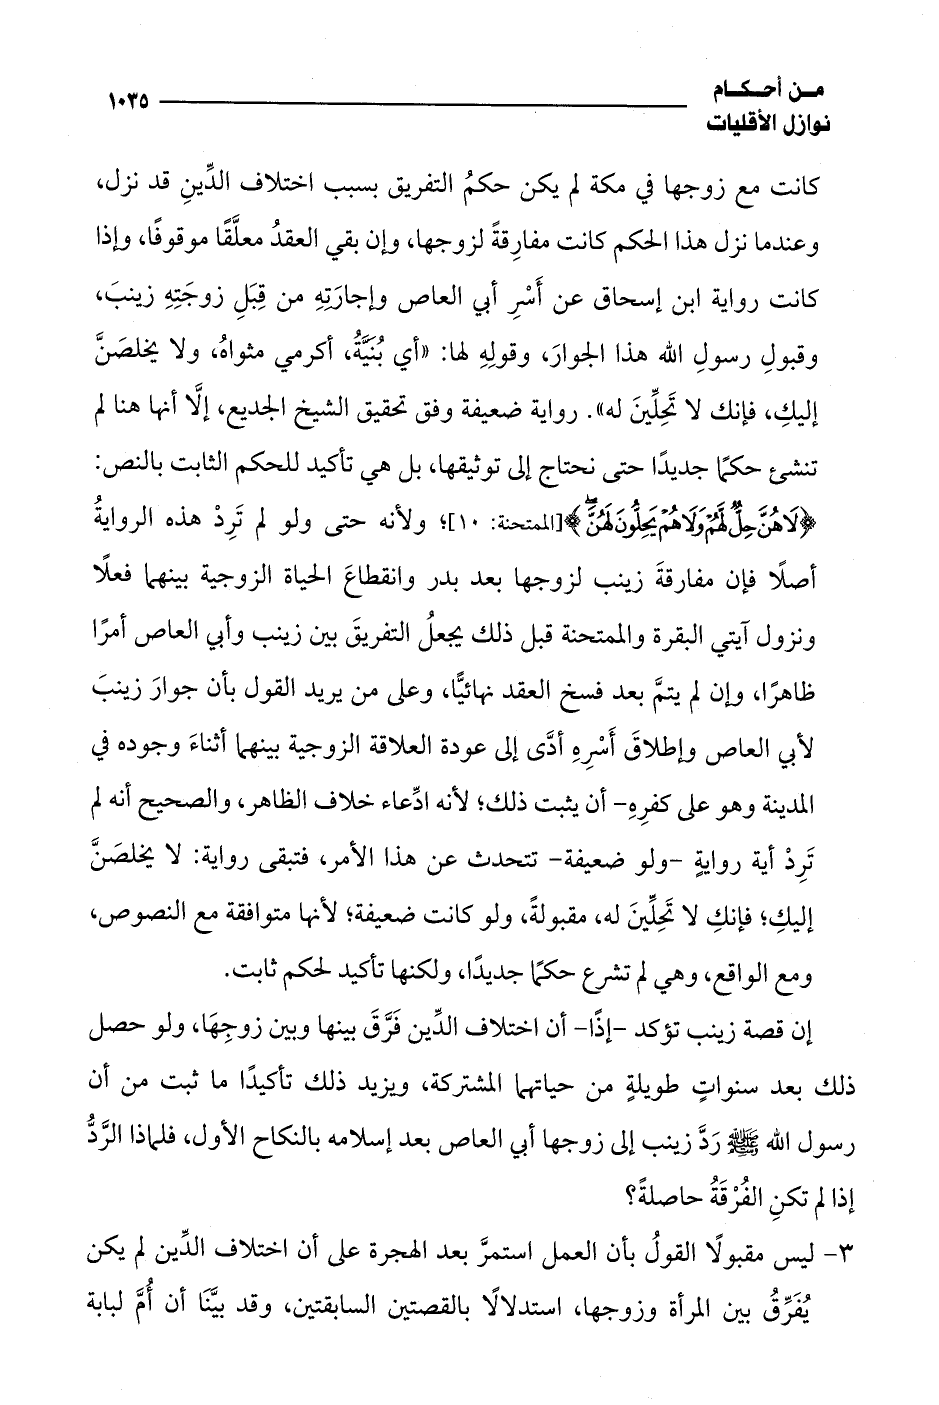 من أحكام
نوازل الأقليات
١٠٣٥
كانت مع زوجها في مكة لم يكن حكمُ التفريق بسبب اختلاف الدِّينِ قد نزل،
وعندما نزل هذا الحكم كانت مفارِقةً لزوجها، وإن بقي العقدُ معلَّقًا موقوفًا، وإذا
كانت رواية ابن إسحاق عن أَسْرِ أبي العاص وإجارَتِهِ من قِبَلِ زوجَتِهِ زينبَ،
وقبولِ رسولِ الله هذا الجوارَ، وقولِهِ لها: «أي بُنَيَّةُ، أكرمي مثواهُ، ولا يخلصَنَّ
إليكِ، فإنك لا تَحِلِّينَ له». رواية ضعيفة وفق تحقيق الشيخ الجديع، إلَّا أنها هنا لم
تنشئ حكمًا جديدًا حتى نحتاج إلى توثيقها، بل هي تأكيد للحكم الثابت بالنص:
﴿لَا هُنَّ حِلٌّ لَّهُمْ وَلَا هُمْ يَحِلُّونَ لَهُنَّ﴾ [الممتحنة: ١٠]؛ ولأنه حتى ولو لم تَرِدْ هذه الروايةُ
أصلًا فإن مفارقةَ زينب لزوجها بعد بدر وانقطاعَ الحياة الزوجية بينهما فعلًا
ونزول آيتي البقرة والممتحنة قبل ذلك يجعلُ التفريقَ بين زينب وأبي العاص أمرًا
ظاهرًا، وإن لم يتمَّ بعد فسخ العقد نهائيًّا، وعلى من يريد القول بأن جوارَ زينبَ
لأبي العاص وإطلاقَ أَسْرِهِ أدَّى إلى عودة العلاقة الزوجية بينهما أثناءَ وجوده في
المدينة وهو على كفرِهِ- أن يثبت ذلك؛ لأنه ادِّعاء خلاف الظاهر، والصحيح أنه لم
تَرِدْ أية روايةٍ -ولو ضعيفة- تتحدث عن هذا الأمر، فتبقى رواية: لا يخلصَنَّ
إليكِ؛ فإنكِ لا تَحِلِّينَ له، مقبولةً، ولو كانت ضعيفة؛ لأنها متوافقة مع النصوص،
ومع الواقع، وهي لم تشرع حكمًا جديدًا، ولكنها تأكيد لحكم ثابت.
إن قصة زينب تؤكد -إذًا- أن اختلاف الدِّين فَرَّقَ بينها وبين زوجِهَا، ولو حصل
ذلك بعد سنواتٍ طويلةٍ من حياتهما المشتركة، ويزيد ذلك تأكيدًا ما ثبت من أن
رسول الله ﷺ رَدَّ زينب إلى زوجها أبي العاص بعد إسلامه بالنكاح الأول، فلماذا الرَّدُّ
إذا لم تكنِ الفُرْقَةُ حاصلةً؟
٣- ليس مقبولًا القولُ بأن العمل استمرَّ بعد الهجرة على أن اختلاف الدِّين لم يكن
يُفَرِّقُ بين المرأة وزوجها، استدلالًا بالقصتين السابقتين، وقد بيَّنَّا أن أُمَّ لبابة